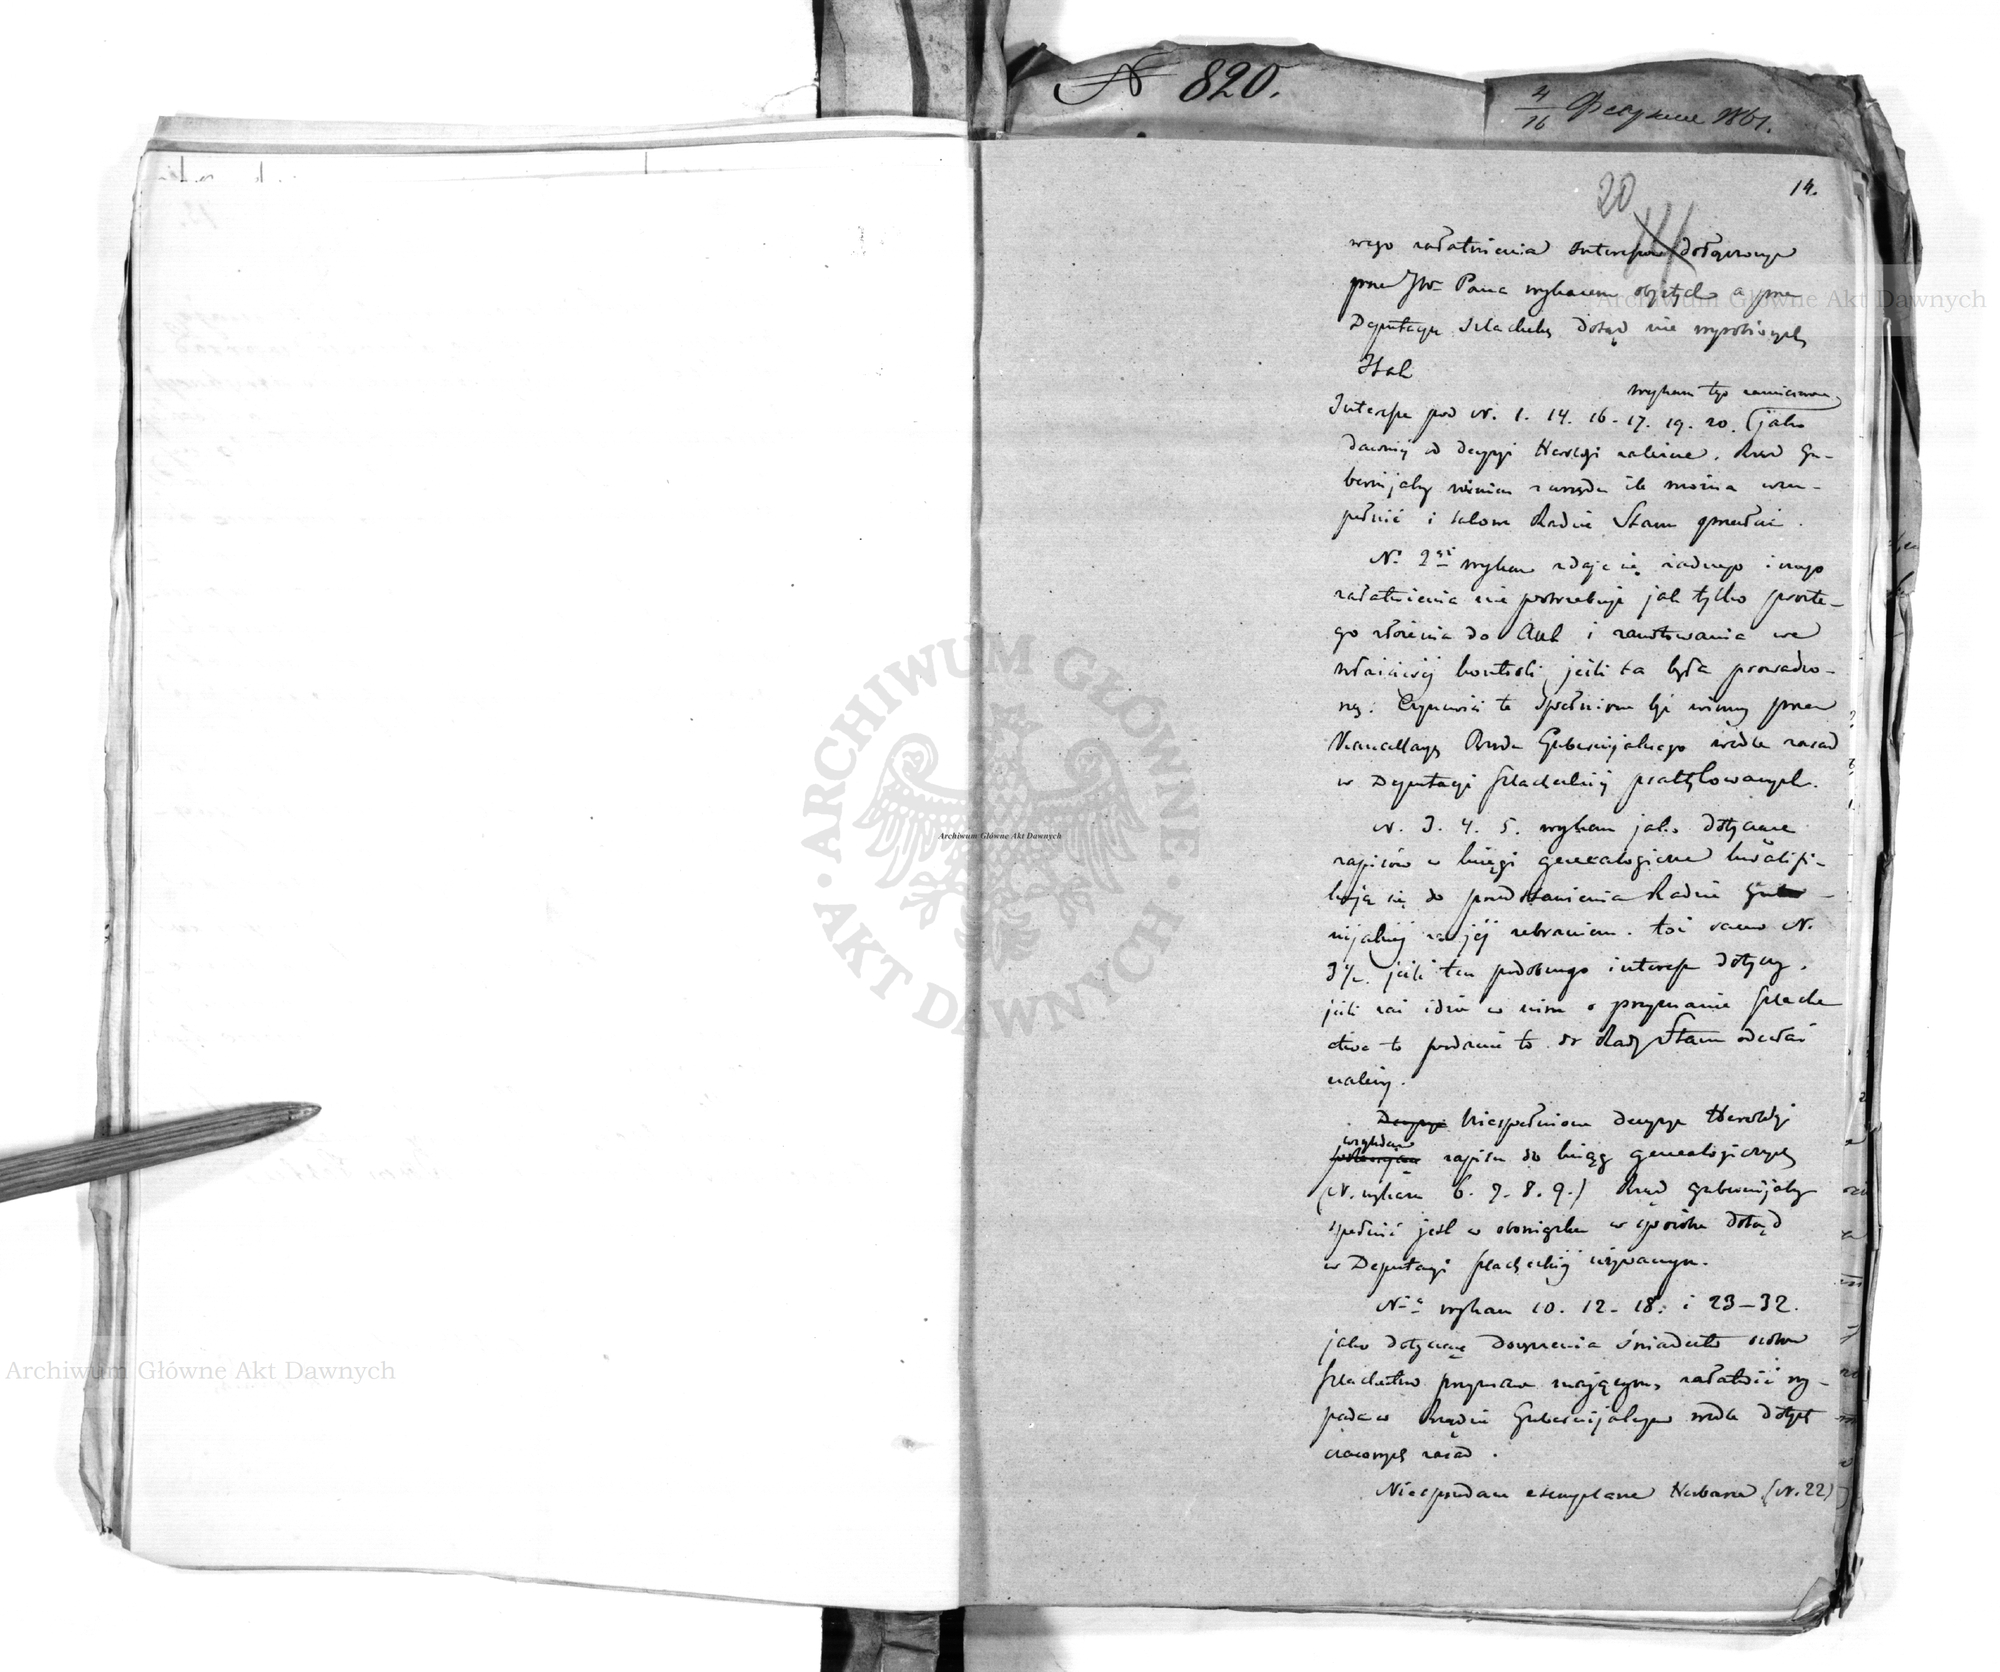 N 820.
4/16 1861.
14.
20
wego załatwienia Interesów dołączonym
przez JW Pana wykazem objętych a przez
Deputacyę Szlachecką dotąd nie wyrobionych
I tak
wykazu tego zamieszczone
Interesa pod N. 1. 14. 16. 17. 19. 20. (jako
dawniej od decyzyi Heroldyi zależne, Rząd Gu-
bernijalny winien z urzędu ile można uzu-
pełnić i takowe Radzie Stanu przesłać.
N° 2gi wykazu zdaje się żadnego innego
załatwienia nie potrzebuje jak tylko proste-
go złożenia do Akt i zanotowania we
właściwej kontroli, jeśli ta była prowadzo-
ną. Czynności te spełnione być winny przez
Kancellaryę Rządu Gubernijalnego wedle zasad
w Deputacyi Szlacheckiej praktykowanych.
N. 3. 4. 5. wykazu jako dotyczące
zapisów w księgi genealogiczne kwalifi-
kują się do przedstawienia Radzie Guber-
nijalnej za jej zebraniem. toż samo N.
jeśli ten podobnego interesu dotyczy.
jeśli zaś idzie w nim o przyznanie szlache
ctwa to podanie to do Rady Stanu odesłać
należy.
Decyzye Niespełnione decyzye Heroldyi
względem
zapisu do ksiąg genealogicznych
(N. wykazu 6. 7. 8. 9.) Rząd gubernijalny
spełnić jest w obowiązku w sposobie dotąd
w Deputacyi szlacheckiej używanym.
N-a wykazu 10. 12-18. i 23-32.
jako dotyczące doręczenia świadectw osobom
szlachectwo przyznane mającym, załatwić wy-
pada w Rządzie Gubernijalnym wedle dotych
czasowych zasad.
Niesprzedane exemplarze Herbarza (N. 22)
Archiwum Główne Akt Dawnych
Archiwum Główne Akt Dawnych
Archiwum Główne Akt Dawnych
ARCHIWUM GŁÓWNE · AKT DAWNYCH ·